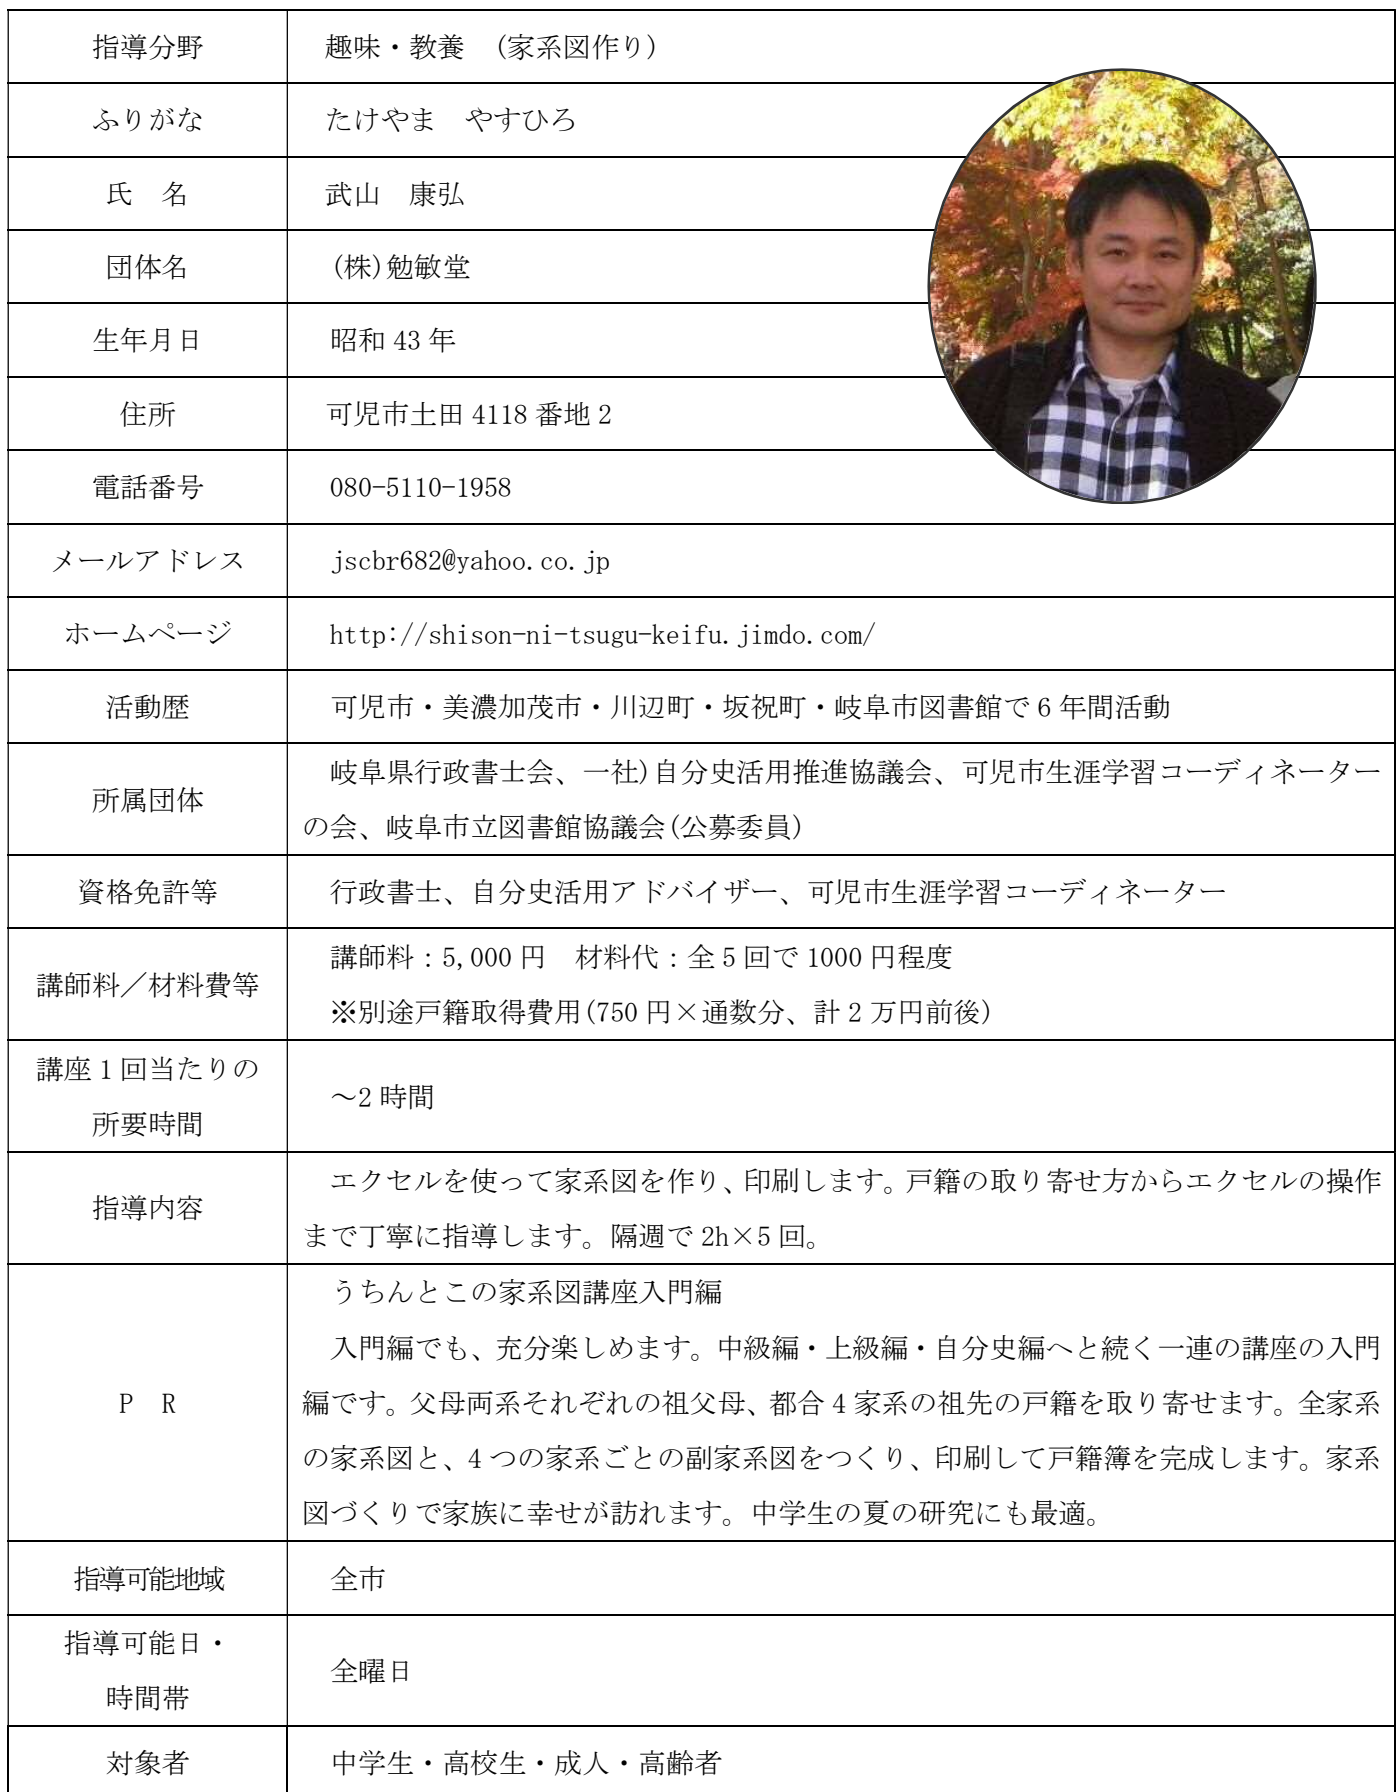 指導分野
趣味・教養　(家系図作り)
ふりがな
たけやま　やすひろ
氏　名
武山　康弘
団体名
(株)勉敏堂
生年月日
昭和 43 年
住所
可児市土田 4118 番地 2
電話番号
080-5110-1958
メールアドレス
jscbr682@yahoo.co.jp
ホームページ
http://shison-ni-tsugu-keifu.jimdo.com/
活動歴
可児市・美濃加茂市・川辺町・坂祝町・岐阜市図書館で 6 年間活動
所属団体
岐阜県行政書士会、一社)自分史活用推進協議会、可児市生涯学習コーディネーター
の会、岐阜市立図書館協議会(公募委員)
資格免許等
行政書士、自分史活用アドバイザー、可児市生涯学習コーディネーター
講師料／材料費等
講師料：5,000 円　材料代：全 5 回で 1000 円程度
※別途戸籍取得費用(750 円×通数分、計 2 万円前後)
講座 1 回当たりの
所要時間
～2 時間
指導内容
エクセルを使って家系図を作り、印刷します。戸籍の取り寄せ方からエクセルの操作
まで丁寧に指導します。隔週で 2h×5 回。
P　R
うちんとこの家系図講座入門編
入門編でも、充分楽しめます。中級編・上級編・自分史編へと続く一連の講座の入門
編です。父母両系それぞれの祖父母、都合 4 家系の祖先の戸籍を取り寄せます。全家系
の家系図と、4 つの家系ごとの副家系図をつくり、印刷して戸籍簿を完成します。家系
図づくりで家族に幸せが訪れます。中学生の夏の研究にも最適。
指導可能地域
全市
指導可能日・
時間帯
全曜日
対象者
中学生・高校生・成人・高齢者